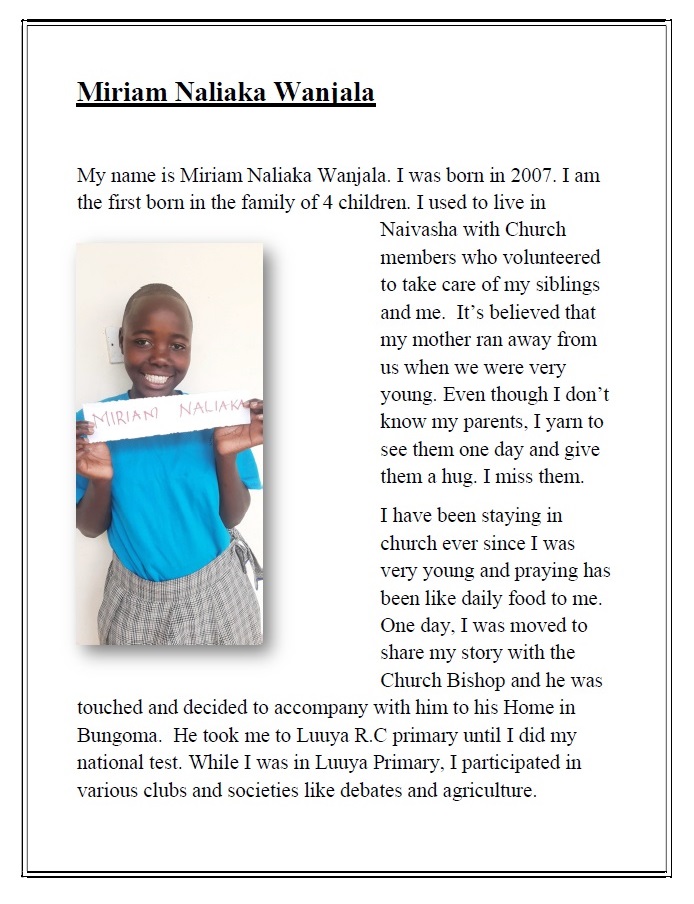 Miriam Naliaka Wanjala
My name is Miriam Naliaka Wanjala. I was born in 2007. I am
the first born in the family of 4 children. I used to live in
Naivasha with Church
members who volunteered
to take care of my siblings
and me.  It’s believed that
my mother ran away from
us when we were very
young. Even though I don’t
know my parents, I yarn to
see them one day and give
them a hug. I miss them.
MIRIAM NALIAKA
I have been staying in
church ever since I was
very young and praying has
been like daily food to me.
One day, I was moved to
share my story with the
Church Bishop and he was
touched and decided to accompany with him to his Home in
Bungoma.  He took me to Luuya R.C primary until I did my
national test. While I was in Luuya Primary, I participated in
various clubs and societies like debates and agriculture.